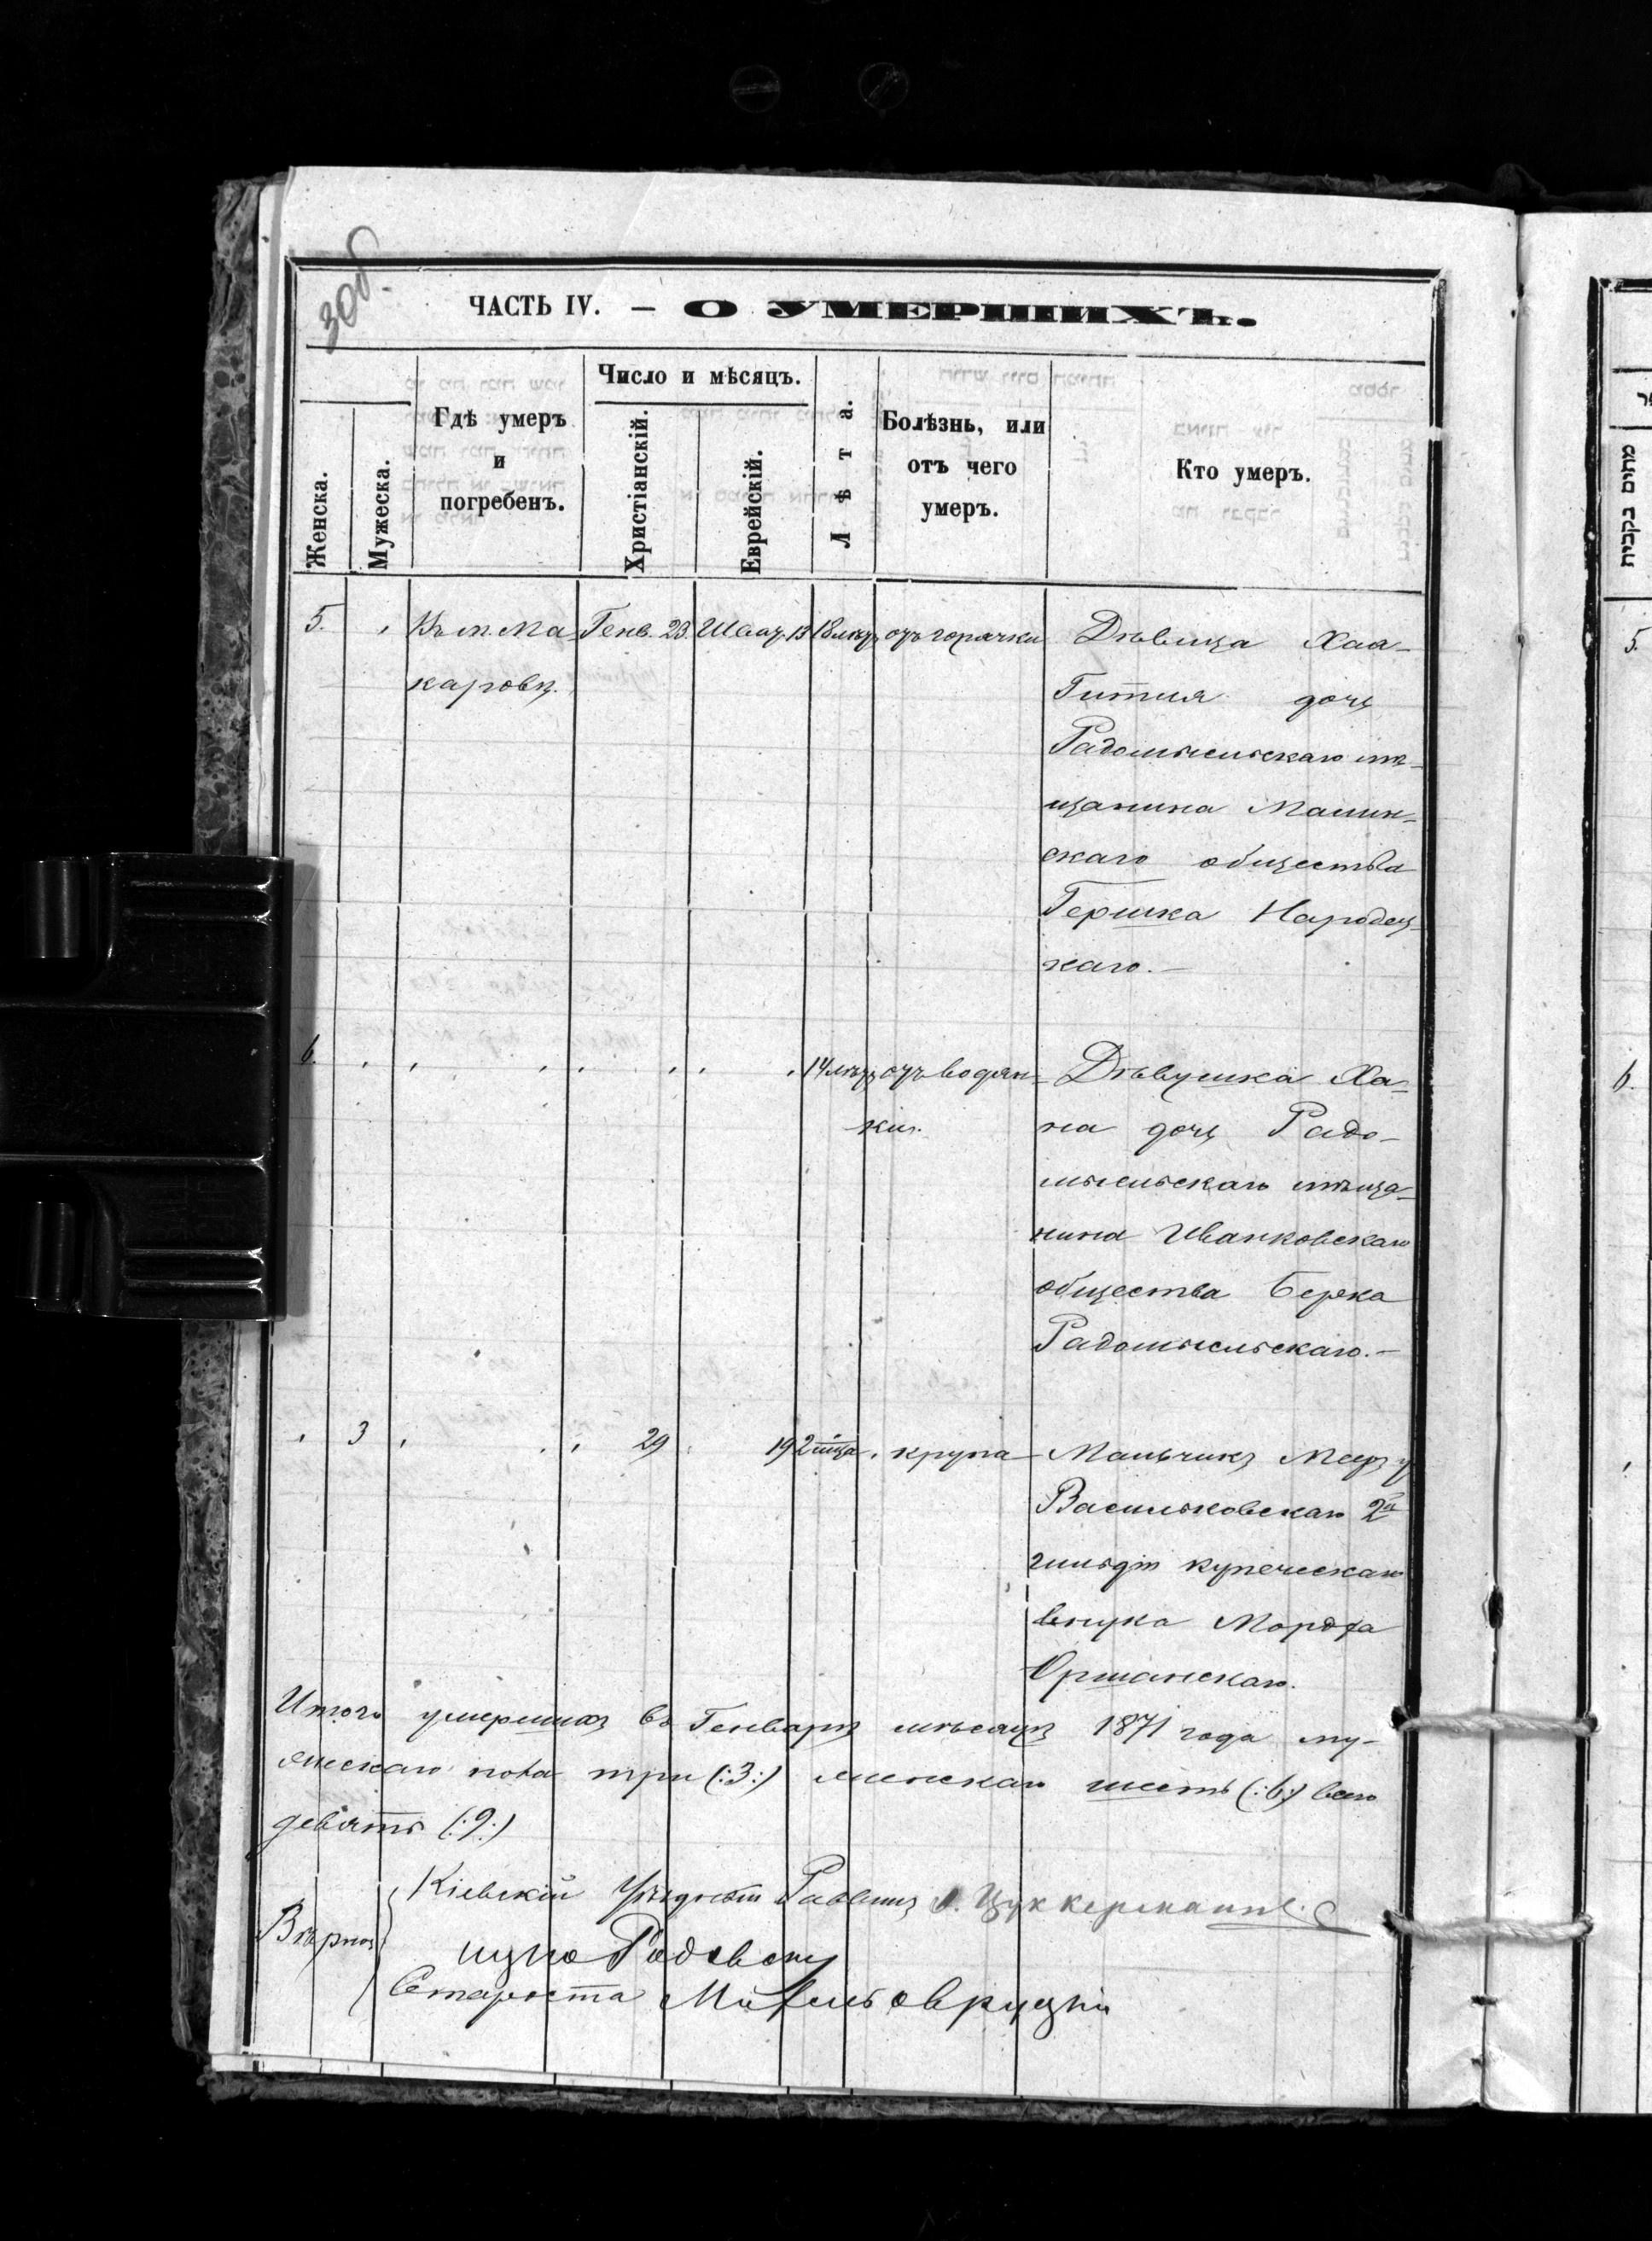 3об.
ЧАСТЬ IV. — О УМЕРШИХЪ.
Женска.
Мужеска.
Гдѣ умеръ
и
погребенъ.
Число и мѣсяцъ.
Христіанскій.
Еврейскій.
Лѣта.
Болѣзнь, или
отъ чего
умеръ.
Кто умеръ.
5. Въ м. Ма- Генв. 23. Шват. 13 18 лѣтъ отъ горячки Дѣвица Хая-
каровѣ. Гитля дочь
Радомысльскаго мѣ-
щанина Малин-
скаго общества
Гершка Народец-
каго.—
6. 14 лѣтъ отъ водян- Дѣвушка Ха-
ки. на дочь Радо-
мысльскаго мѣща-
нина Иванковскаго
общества Берка
Радомысльскаго.—
3 29 19 2 мца крупа Мальчикъ Меер у
Васильковскаго 2й
гильдіи купеческаго
внука Мордха
Оршанскаго.
Итого умершихъ въ Генварѣ мѣсяцѣ 1871 года му-
жескаго пола три (:3:) женскаго шесть (:6:) всего
девять (:9:)
Вѣрно
Кіевскій Уѣздный Раввинъ Цуккерманъ
Староста
מתים נקבות
5.
6.